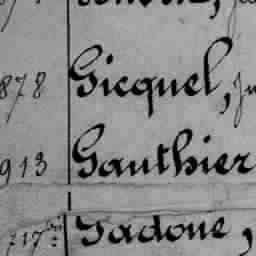 878 Gicquel, ju
913 Gauthier
717bis Jadoue,